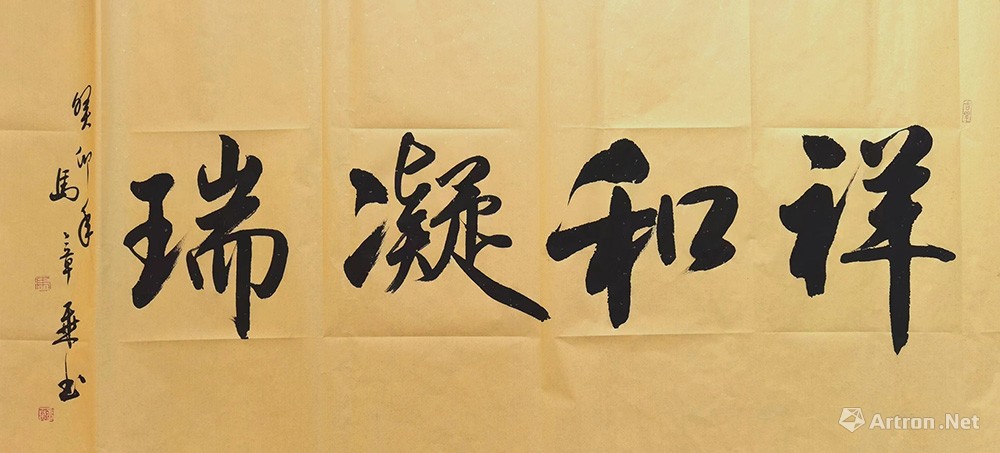 祥和凝瑞
癸卯年
馬章乘书
Artron.Net